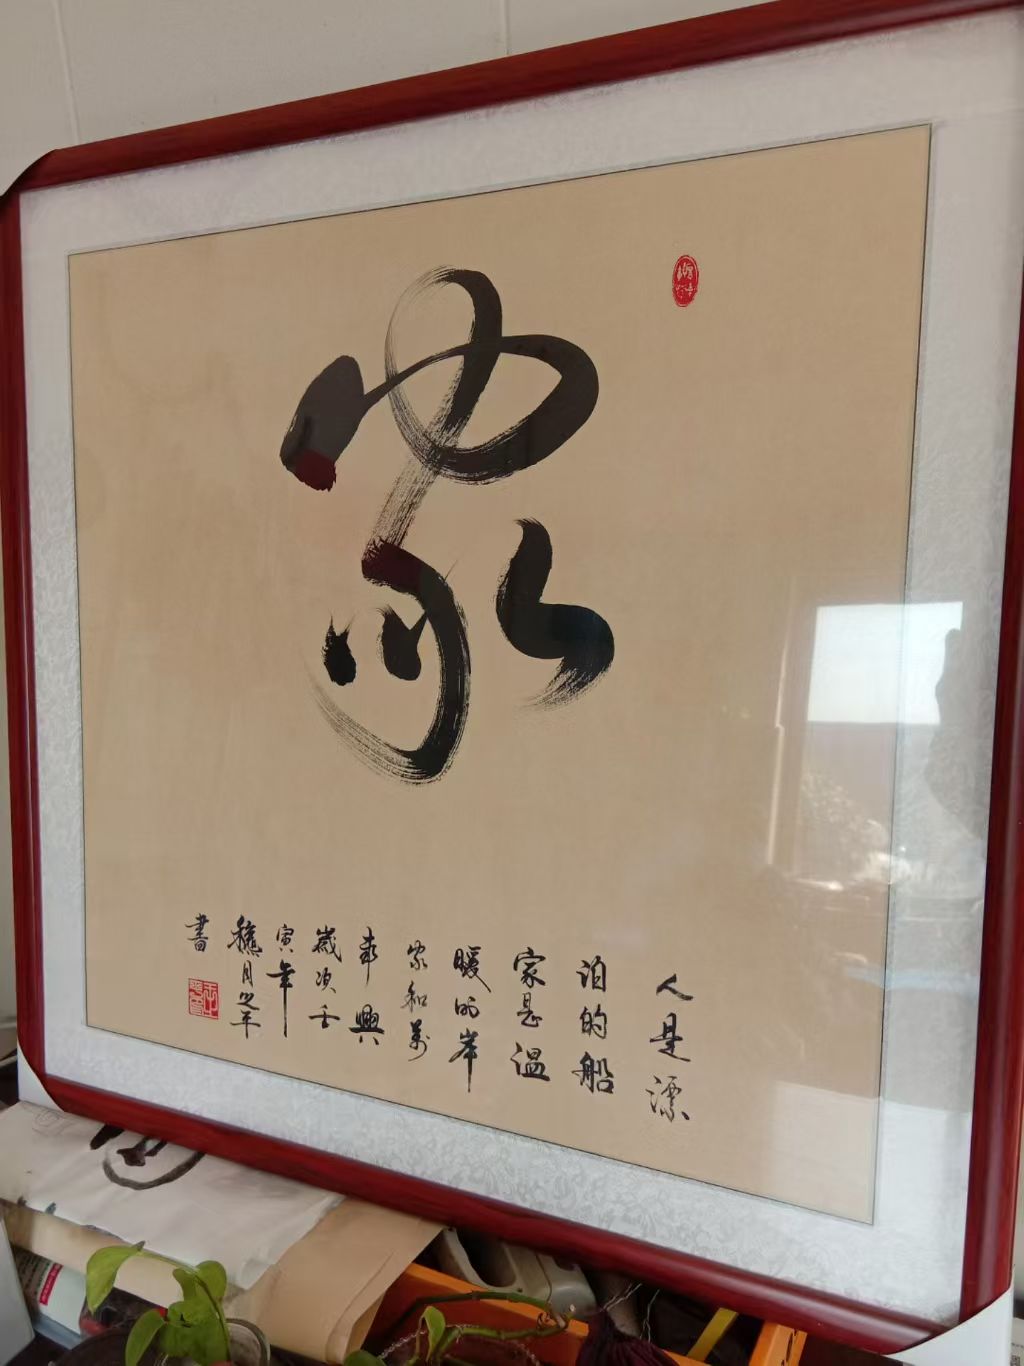 家
人是漂
泊的船
家是温
暖的岸
家和万
事興
歲次壬
寅年
書